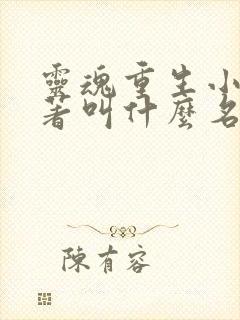 靈魂重生小
著叫什麼名
陳有容